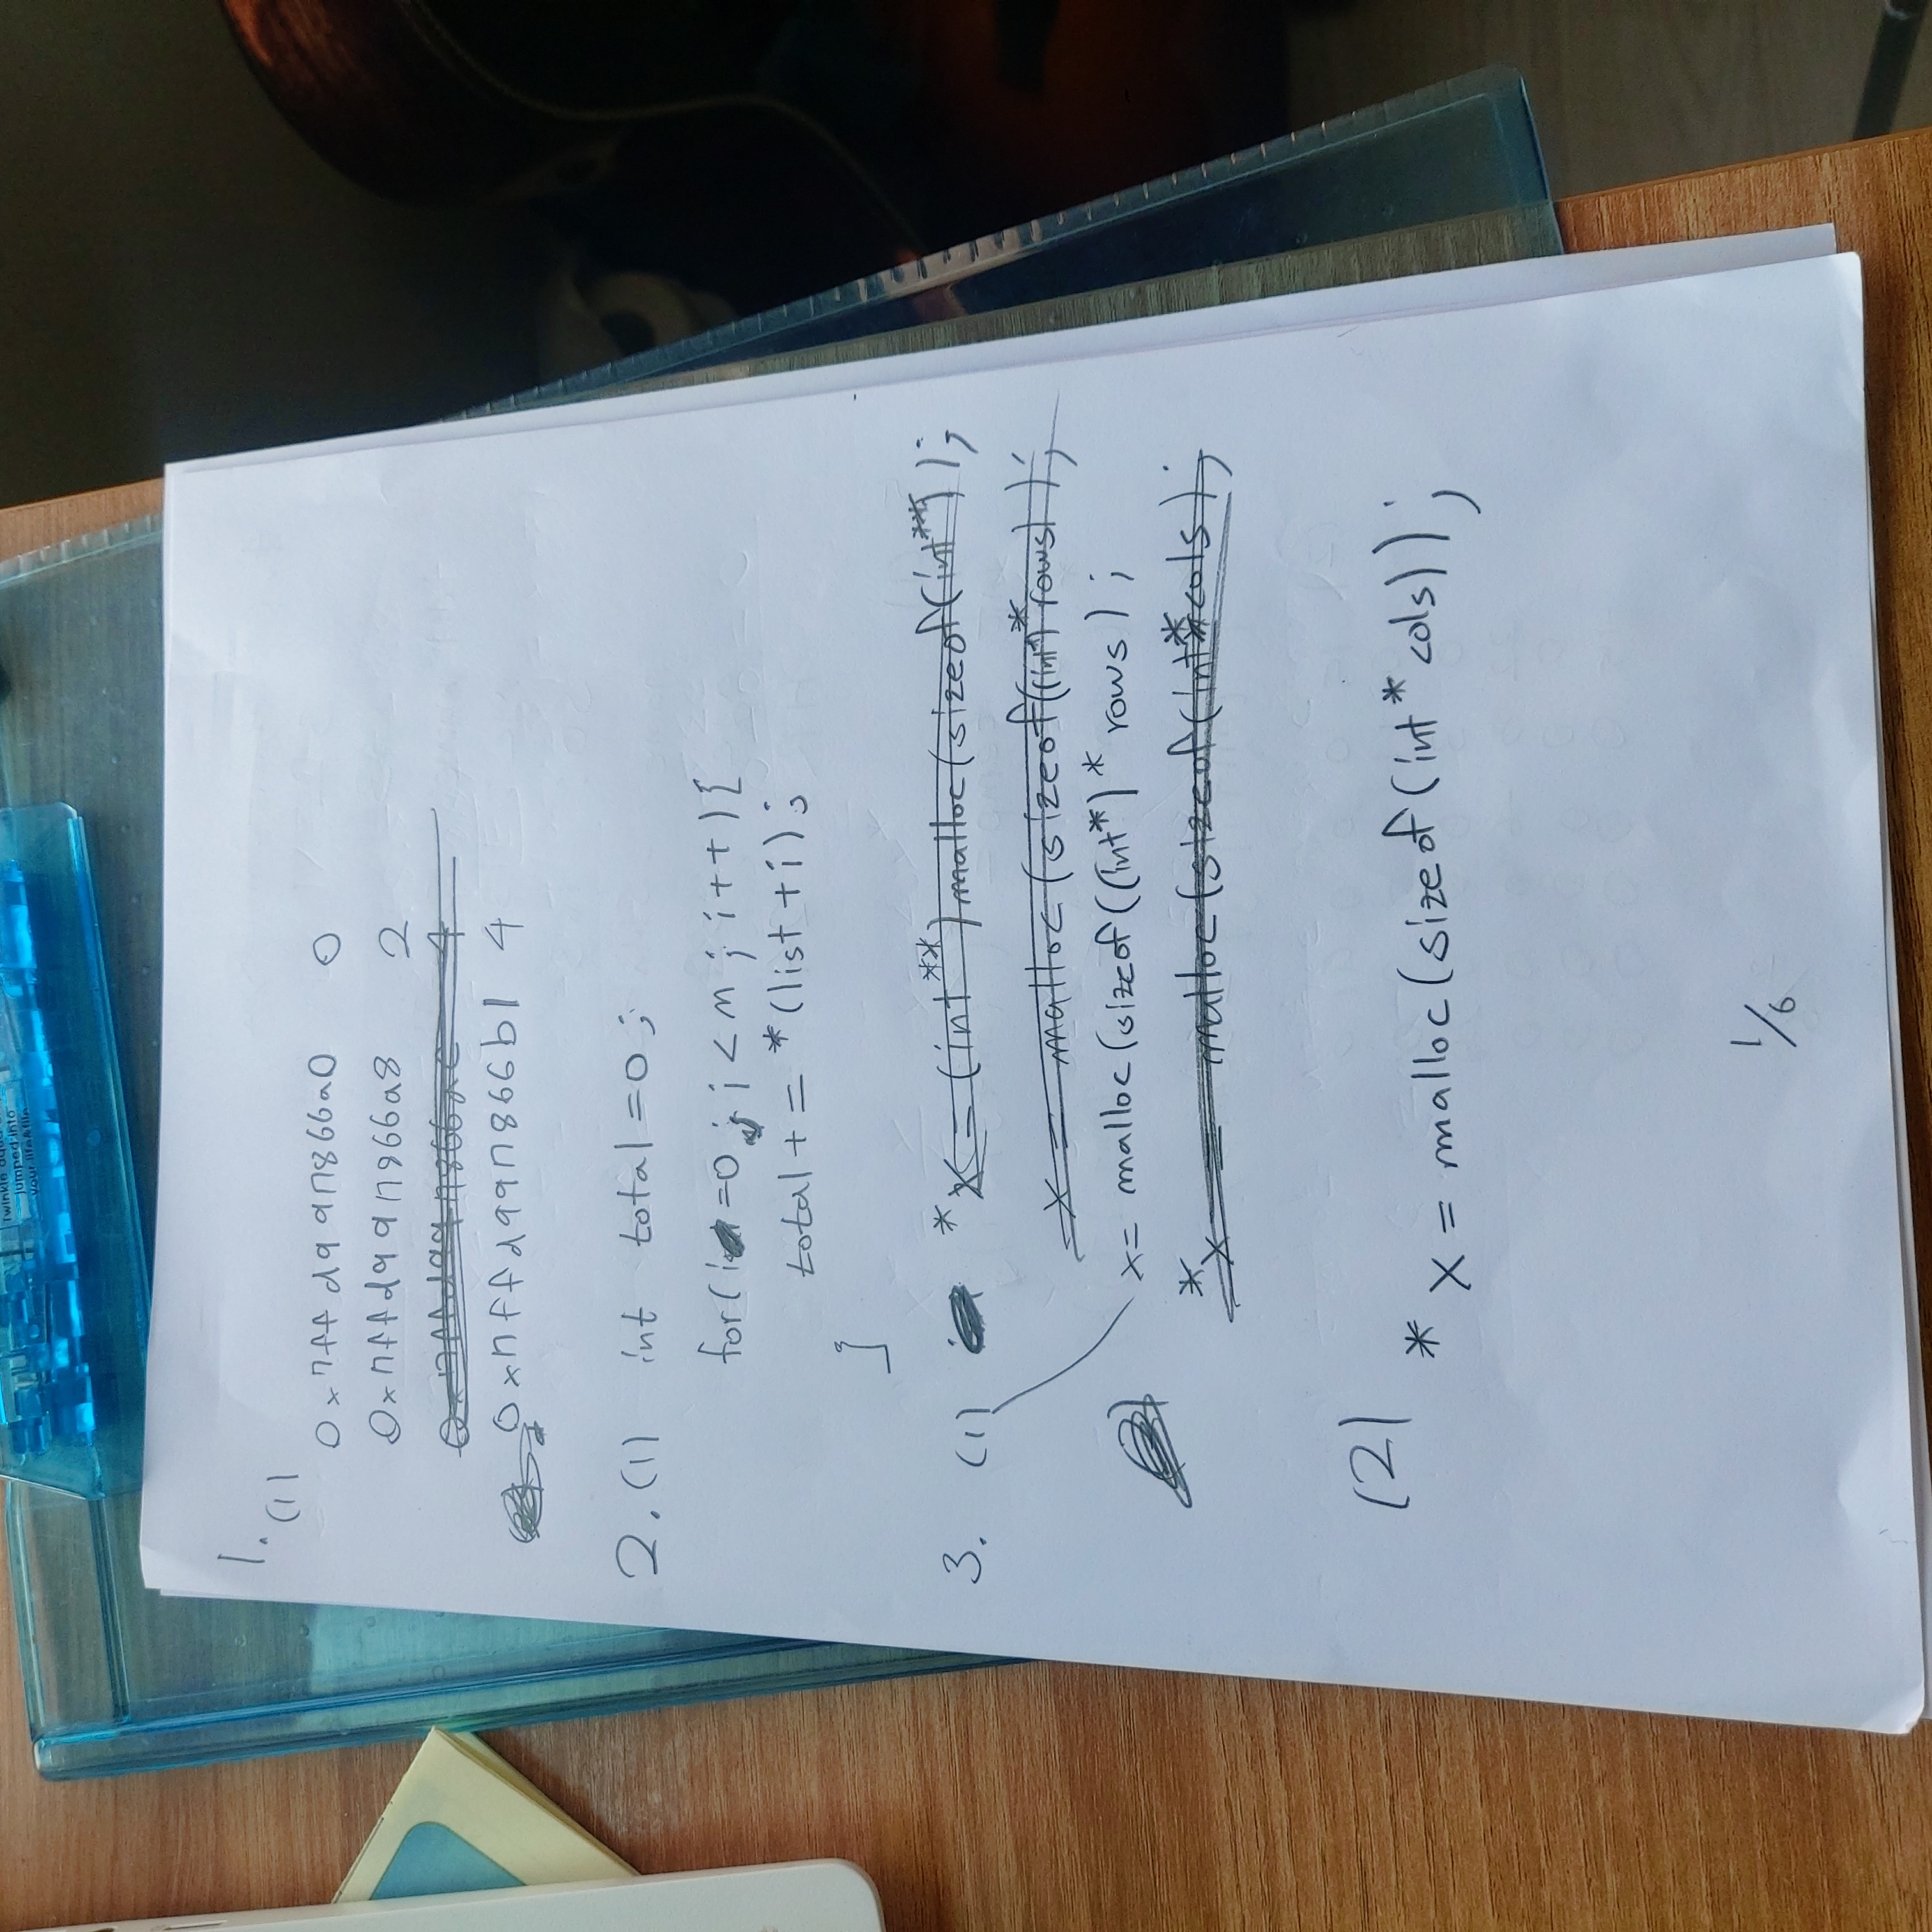 Twinkle aqua
jumped into
your life&file
1.
(1)
0x7ffd997866a0 0
0x7ffd997866a8 2
0x7ffd997866ac 4
0x7ffd997866b1 4
2. (1) int total = 0 ;
for(i =0 ; i < n ; i++){
total += *(list + i) ;
}
3. (1) *x = (int**)malloc(sizeof(int**));
x = malloc(sizeof((int)*rows));
x= malloc(sizeof((int*) * rows) ;
*x = malloc(sizeof(int*cols);
(2)
*x = malloc(sizeof(int*cols));
1/6